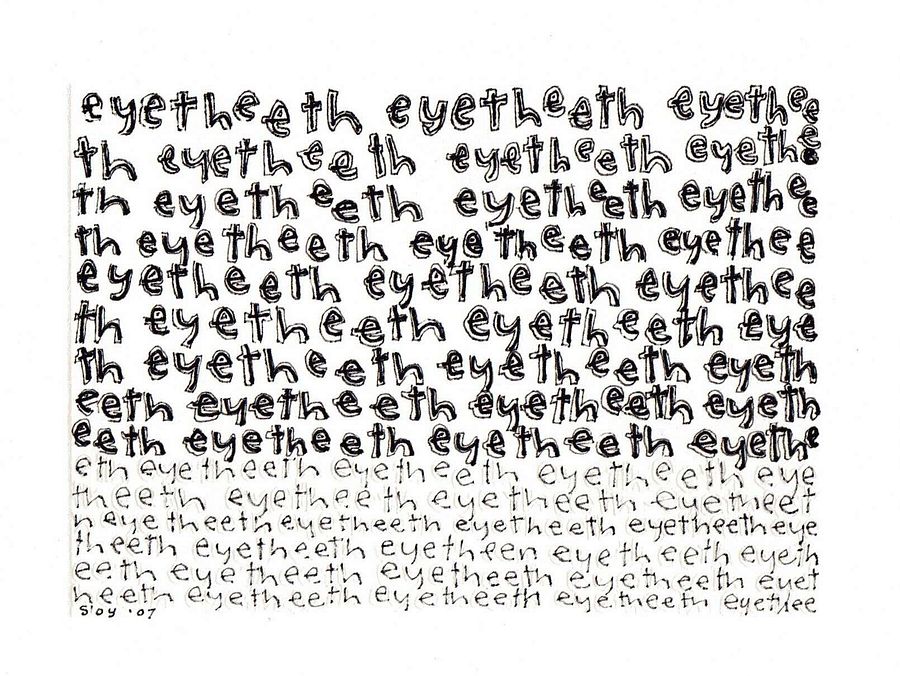 eyetheeth eyetheeth eyethee
th eyetheeth eyetheeth eyethe
th eyetheeth eyetheeth eyethe
th eyetheeth eyetheeth eyethee
eyetheeth eyetheeth eyethee
th eyetheeth eyetheeth eye
th eyetheeth eyetheeth eyeth
eeth eyetheeth eyetheeth eyeth
eeth eyetheeth eyetheeth eyethe
eth eyetheeth eyetheeth eyetheeth eye
theeth eyetheeth eyetheeth eyetheet
h eyetheetheyetheeth eyetheeth eyetheetheye
theeth eyetheeth eyetheen eyetheeth eyeth
eeth eyetheeth eyetheeth eyetheeth eyet
heeth eyetheeth eyetheeth eyetheeth eyethee
s'oy '07